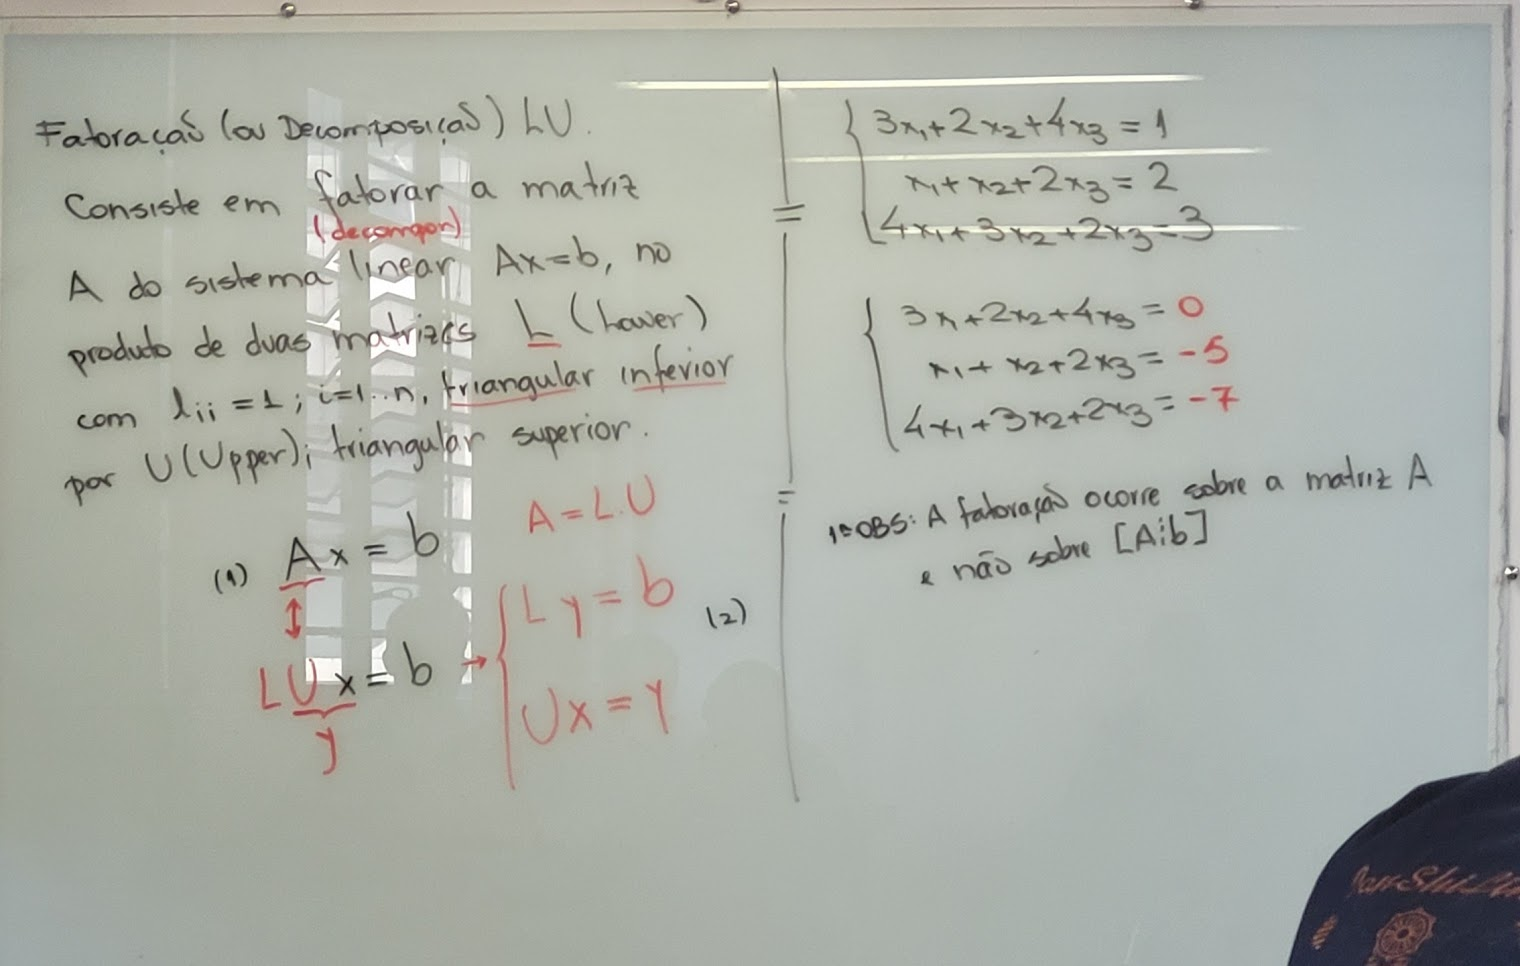 Fatoração (ou Decomposição) LU.
Consiste em fatorar a matriz
(decompor)
A do sistema linear Ax=b, no
produto de duas matrizes L (Lower)
com lii = 1; i=1..n, triangular inferior
por U (Upper); triangular superior.
A = L.U
(1) Ax = b
LUx = b → { Ly = b (2)
y
Ux = y
3x₁+2x₂+4x₃ = 1
x₁+x₂+2x₃ = 2
4x₁+3x₂+2x₃ = 3
3x₁+2x₂+4x₃ = 0
x₁+x₂+2x₃ = -5
4x₁+3x₂+2x₃ = -7
1ª OBS: A fatoração ocorre sobre a matriz A
e não sobre [A¦b]